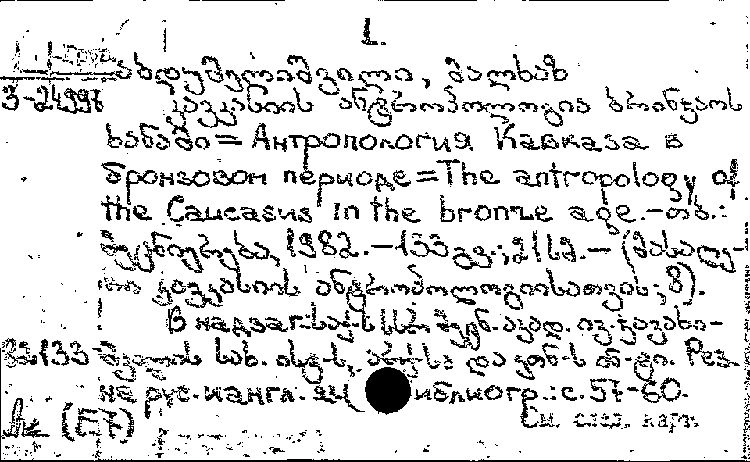 L.
აბდუშელიშვილი, მალხაზ
3-24997 კავკასიის ანტროპოლოგია ბრინჯაოს
ხანაში = Антропология Кавказа в
бронзовом периоде = The antropology of
the Caucasus in the bronze age. – თბ.:
მეცნიერება, 1982. – 133 გვ.; 21 სმ. – (მასალე-
ბი კავკასიის ანტროპოლოგიისათვის; 8).
В надзаг.: საქ. სსრ მეცნ. აკად. ივ. ჯავახი-
82.133 შვილის სახ. ისტ. Рез.
на рус. и англ. яз. Библиогр.: с. 57-60.
(Е7) См. след. карт.